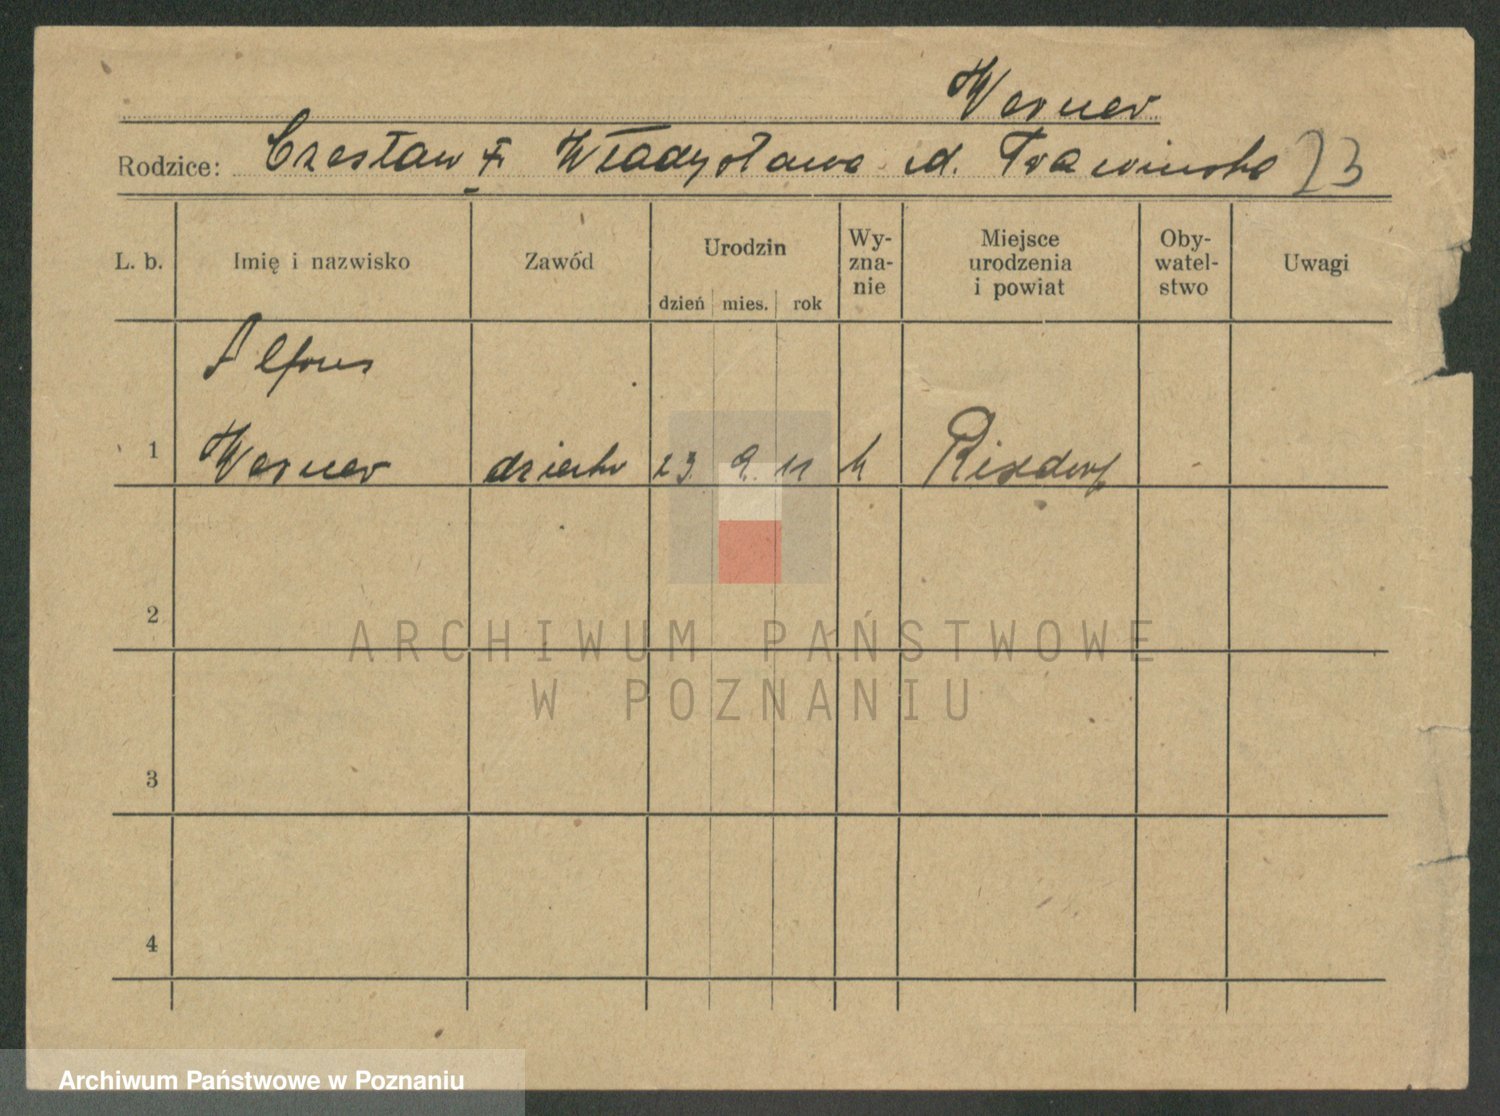 Werner
Rodzice: Czesław Władysława d. Trawinska 23
L. b. Imię i nazwisko Zawód Urodzin dzień mies. rok Wy-zna-nie Miejsce urodzenia i powiat Oby-watel-stwo Uwagi
Alfons
1 Werner dziecko 23. 9. 11 k Rixdorf
2
3
4
ARCHIWUM PAŃSTWOWE
W POZNANIU
Archiwum Państwowe w Poznaniu